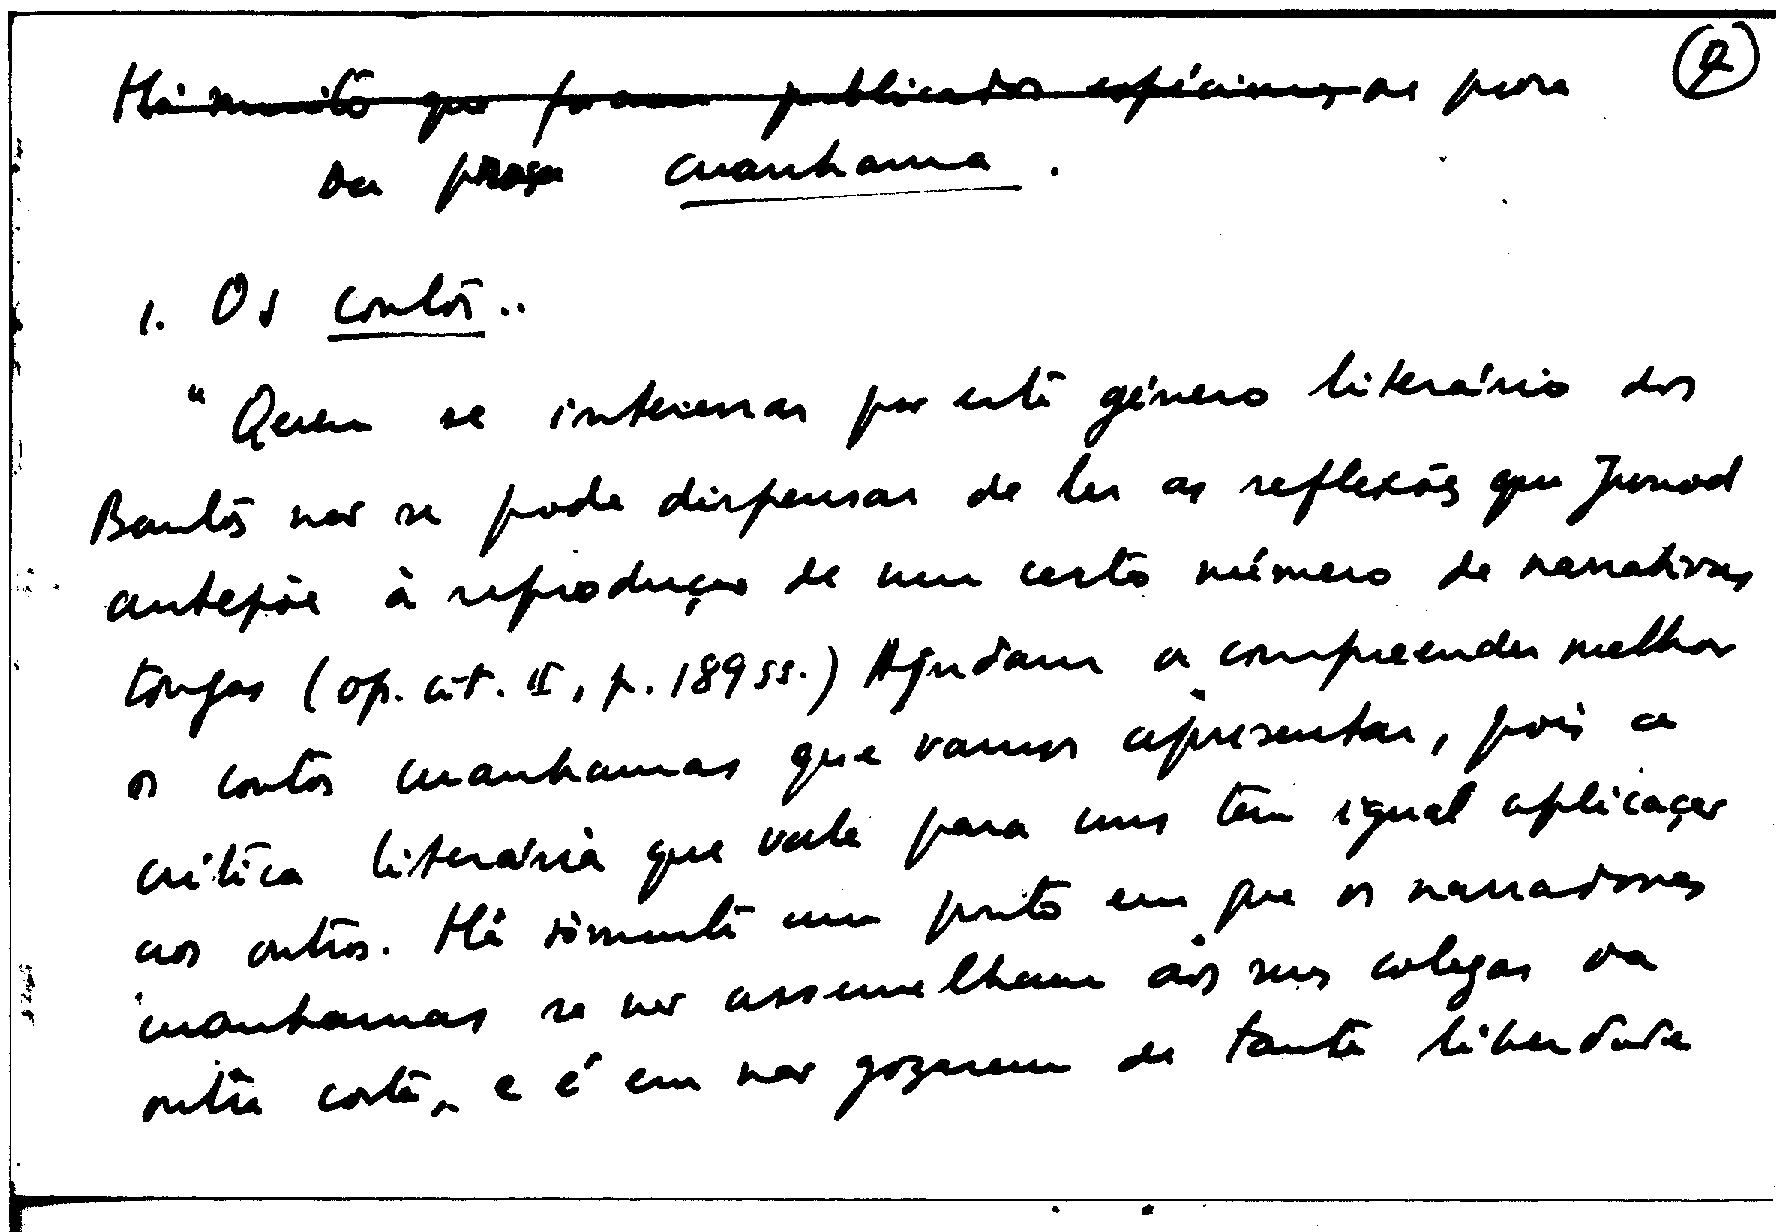 Há muito que foram publicados espécimes de prosa
da prosa cuanhama.
1. Os contos..
"Quem se interessar por este género literário dos
Bantos não se pode dispensar de ler as reflexões que Junod
antepõe à reprodução de um certo número de narrativas
tongas (op. cit. II, p. 189 ss.) Ajudam a compreender melhor
os contos cuanhamas que vamos apresentar, pois a
crítica literária que vale para uns tem igual aplicação
aos outros. Há sòmente um ponto em que os narradores
cuanhamas se não assemelham aos seus colegas da
outra costa, e é em não gozarem de tanta liberdade